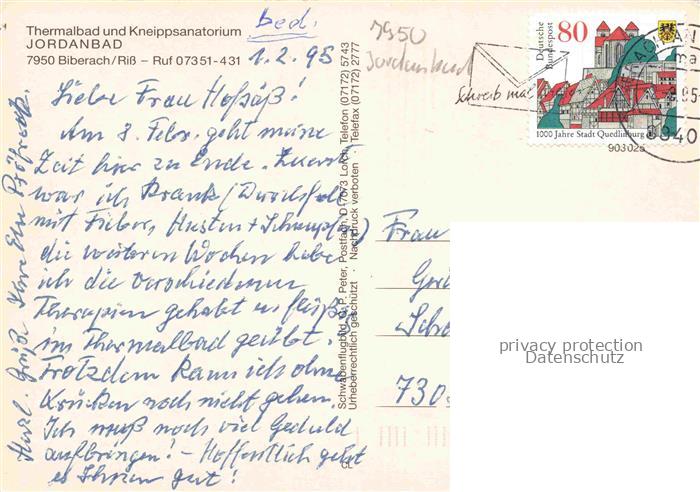 Thermalbad und Kneippsanatorium
JORDANBAD
7950 Biberach/Riß – Ruf 07351-431
bed.
1.2.95
7950
Jordanbad
Liebe Frau Hofsäß!
Am 8. Febr. geht meine
Zeit hier zu Ende. Zuerst
war ich krank (Durchfall
mit Fieber, Husten + Schnupfen)
die weiteren Wochen habe
ich die verschiedenen
Therapien gehabt u. fleißig
im Thermalbad geübt.
Trotzdem kann ich ohne
Krücken noch nicht gehen.
Ich muß noch viel Geduld
aufbringen! – Hoffentlich geht
es Ihnen gut!
Herzl. Grüße Ihre Eln
Schwabenflugbild, G. P. Peter, Postfach, D-7073 Lorch, Telefon (07172) 5743
Urheberrechtlich geschützt · Nachdruck verboten · Telefax (07172) 2777
Schreib mal
80
Deutsche
Bundespost
1000 Jahre Stadt Quedlinburg
903025
Frau
730
privacy protection
Datenschutz